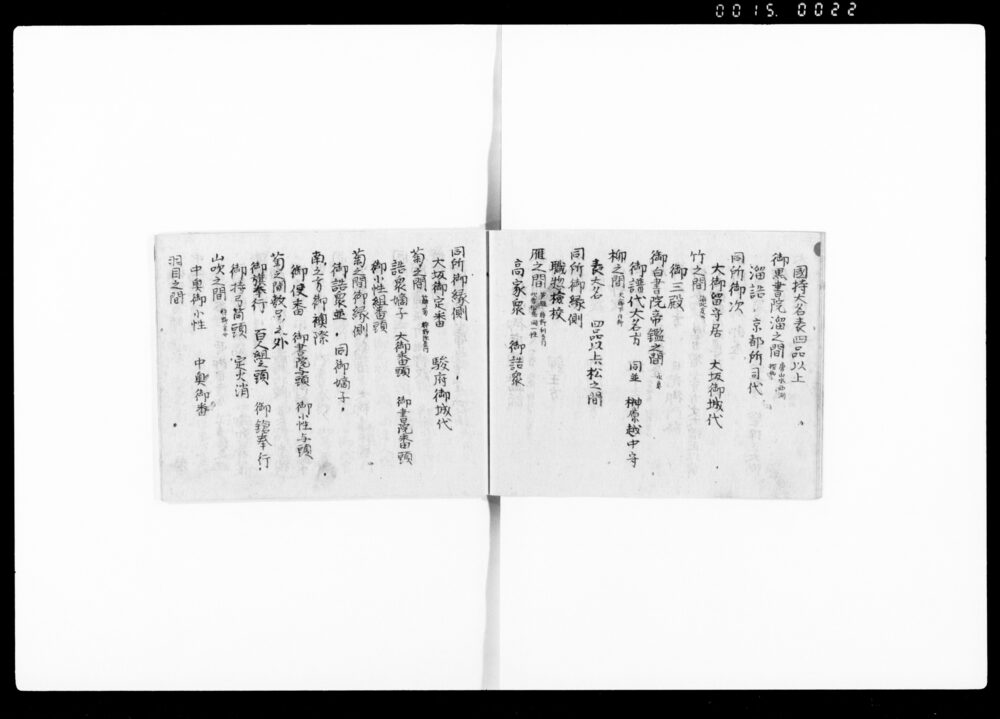 0015. 0022
國持大名表四品以上
御黒書院溜之間
溜詰 京都所司代
同所御次
大御留守居 大坂御城代
竹之間
御三殿
御白書院帝鑑之間
御譜代大名方 同並 榊原越中守
柳之間
表大名 四品以上松之間
同所御縁側
職惣検校
雁之間
高家衆 御詰衆
同所御縁側
大坂御定番 駿府御城代
菊之間
詰衆嫡子 大御番頭 御書院番頭
御小性組番頭
菊之間御縁側
御詰衆並 同御嫡子
南之方御襖際
御使番 御書院与頭 御小性与頭
菊之間敷居之外
御旗奉行 百人組之頭 御鎗奉行
御持弓筒頭 定火消
山吹之間
中奥御小性 中奥御番
羽目之間